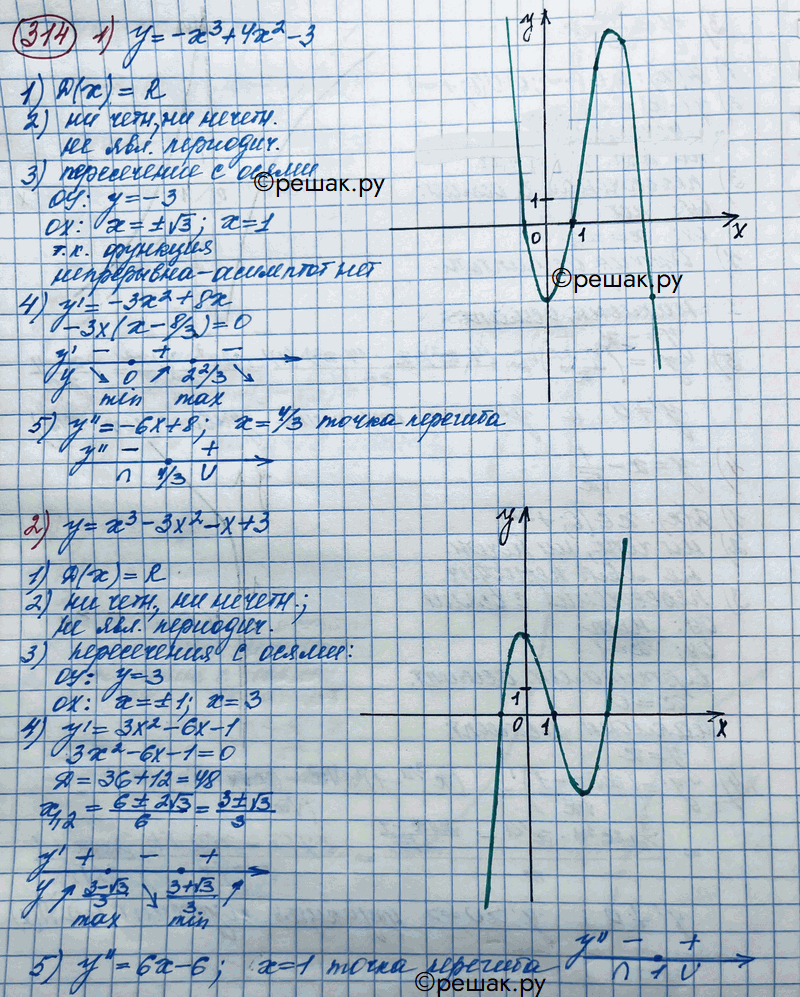 314 1) y = -x³ + 4x² - 3
1) D(x) = R
2) ни четн, ни нечетн.
не явл. периодич.
3) пересечение с осями
OY: y = -3
OX: x = ±√3; x = 1
т.к. функция
непрерывна - асимптот нет
4) y' = -3x² + 8x
-3x(x - 8/3) = 0
y' - + -
y ↘ 0 ↗ 2 2/3 ↘
min max
5) y'' = -6x + 8; x = 4/3 точка перегиба
y'' - +
∩ 4/3 ∪
y
1
0 1 x
©решак.ру
©решак.ру
2) y = x³ - 3x² - x + 3
1) D(x) = R
2) ни четн, ни нечетн.;
не явл. периодич.
3) пересечения с осями:
OY: y = 3
OX: x = ±1; x = 3
4) y' = 3x² - 6x - 1
3x² - 6x - 1 = 0
D = 36 + 12 = 48
x₁,₂ = (6 ± 2√3)/6 = (3 ± √3)/3
y' + - +
y ↗ (3-√3)/3 ↘ (3+√3)/3 ↗
max min
5) y'' = 6x - 6; x = 1 точка перегиба
y'' - +
∩ 1 ∪
y
1
0 1 x
©решак.ру